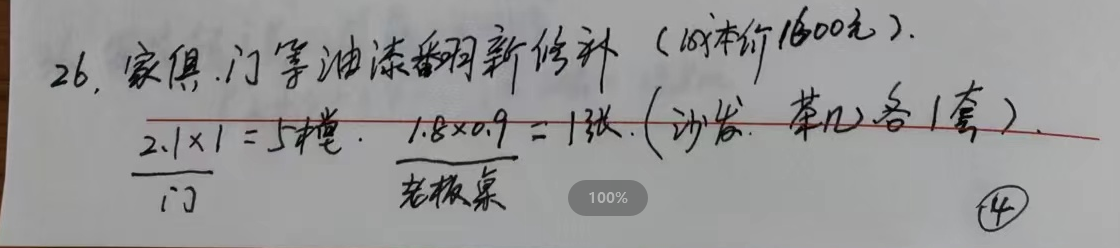 26. 家俱.门等油漆翻新修补 (成本价1600元).
2.1×1 = 5樘. 1.8×0.9 = 1张. (沙发. 茶几各1套).
门 老板桌
100%
④